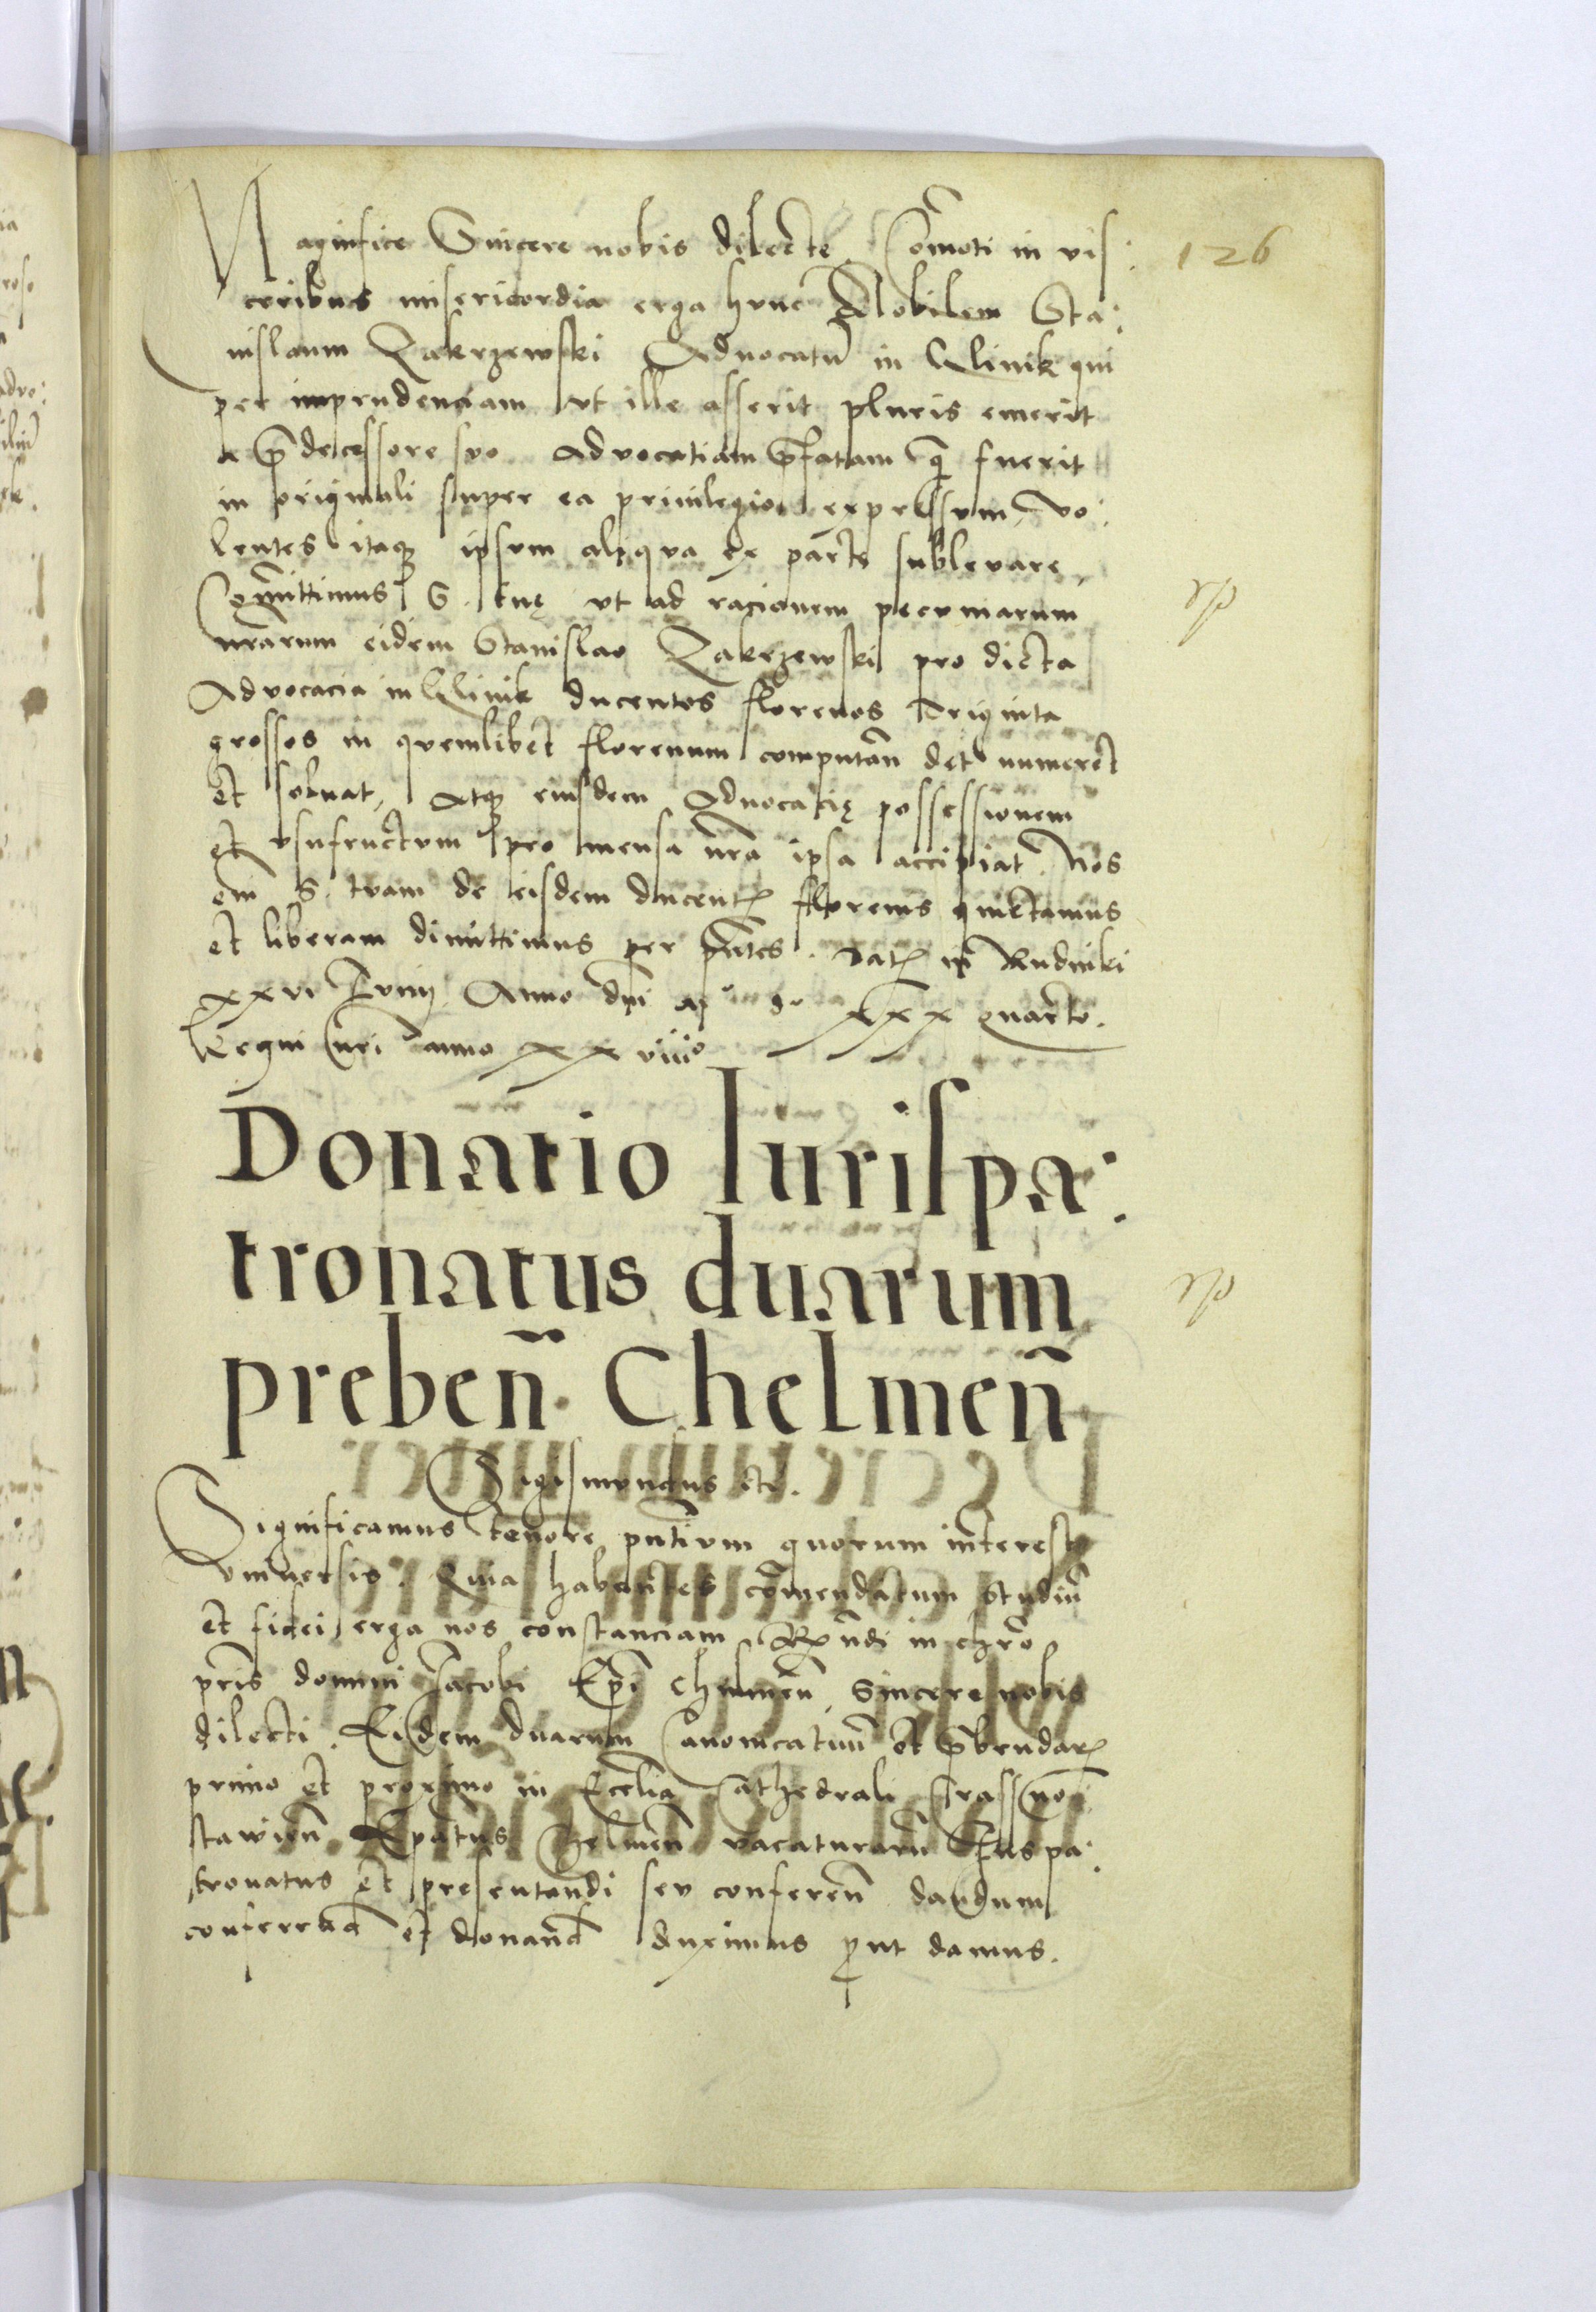 126
Magnifice Sincere nobis dilecte. Com̃oti in vis:
ceribus misericordia erga hunc Nobilem Sta:
nislaum Zakrzewski Aduocatũ in Glinik qui
per imprudenciam vt ille asserit pluris emerit
a p̃decessore suo Aduocatiam p̃fatam q̃ fuerit
in originali super ea priuilegio expressum, vo:
lentes itaq; ipsum aliqua ex parte subleuare,
Com̃ittimus S. tuę vt ad racionem pecuniarum
nr̃arum eidem Stanislao Zakrzewski pro dicta
Aduocacia in Glinik ducentos florenos triginta
grossos in quemlibet florenum computañ det numeret
et soluat, atq; eiusdem Aduocacię possessionem
et vsufructum pro mensa nr̃a ipsa accipiat. Nos
em̃ S. tuam de eisdem ducent florenis quietamus
et liberam dimittimus per p̃ntes. Dat in Rudniki
xxvi Iunij Anno dñi xxx quarto.
Regni nr̃i anno xxviiiº
Donatio Iurispa:
tronatus duarum
prebeñ. Chelmeñ
Sigismundus etc.
Significamus tenore pñtium quorum interest
vniuersis. Quia habentes com̃endatum studiũ
et fidei erga nos constanciam Rñdi in chr̃o
pr̃is domini Iacobi Ep̃i Chelmeñ Sincere nobis
dilecti. Eidem duarum Canonicatuũ et p̃bendar
primo et proximo in Eccl̃ia Cathedrali Crassno:
stawieñ Ep̃atus Chelmeñ vacaturarũ Ius pa:
tronatus et presentandi seu confereñ dandum
conferenđ et donanđ duximus p̱ut damus.
rp
rp